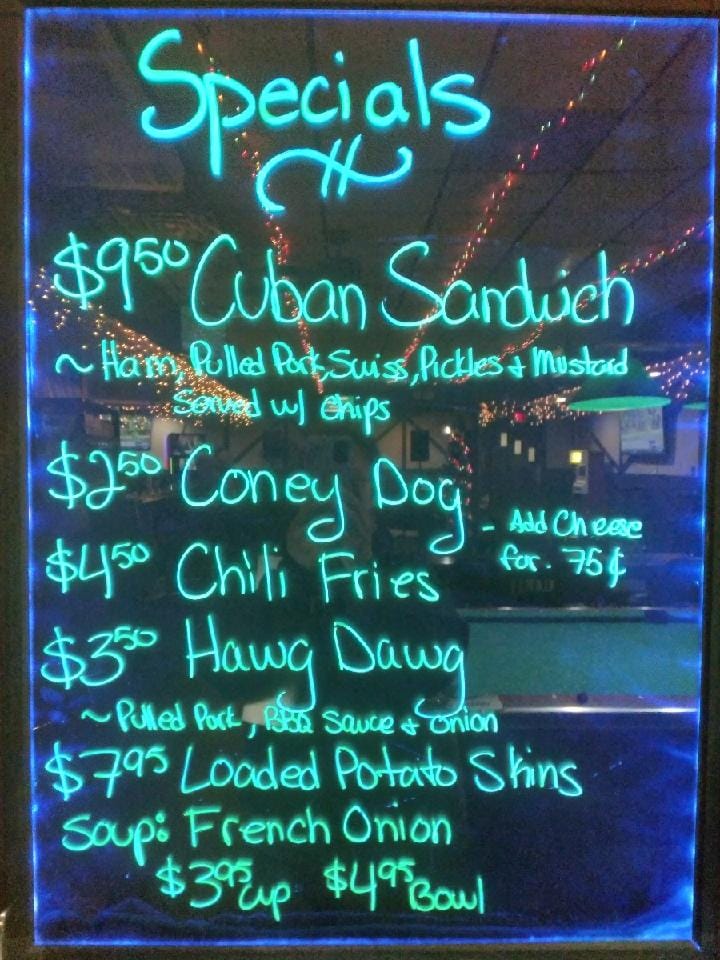 Specials
$9.50 Cuban Sandwich
~ Ham, Pulled Pork, Swiss, Pickles + Mustard
Served w/ chips
$2.50 Coney Dog
- Add Cheese
for .75¢
$4.50 Chili Fries
$3.50 Hawg Dawg
~ Pulled Pork, BBQ Sauce + Onion
$7.95 Loaded Potato Skins
Soup: French Onion
$3.95 Cup $4.95 Bowl